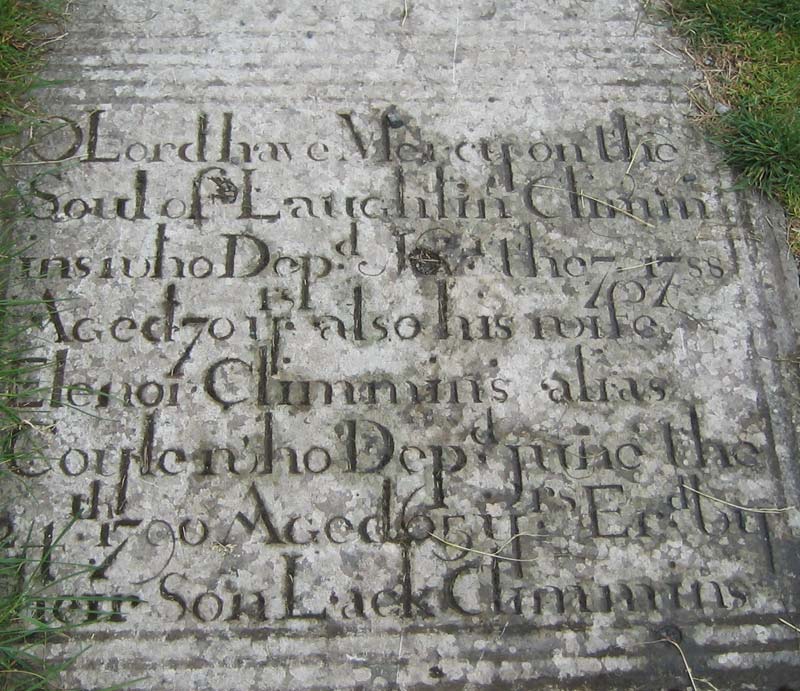 O Lord have Mercy on the
Soul of Laughlin Climm
ins who Depd. Novr. the 7 1788
Aged 70 yrs also his wife
Elenor Climmins alias
Coyle who Depd. june the
th 1790 Aged 65 yrs. Erd. by
their Son Lack Climmins